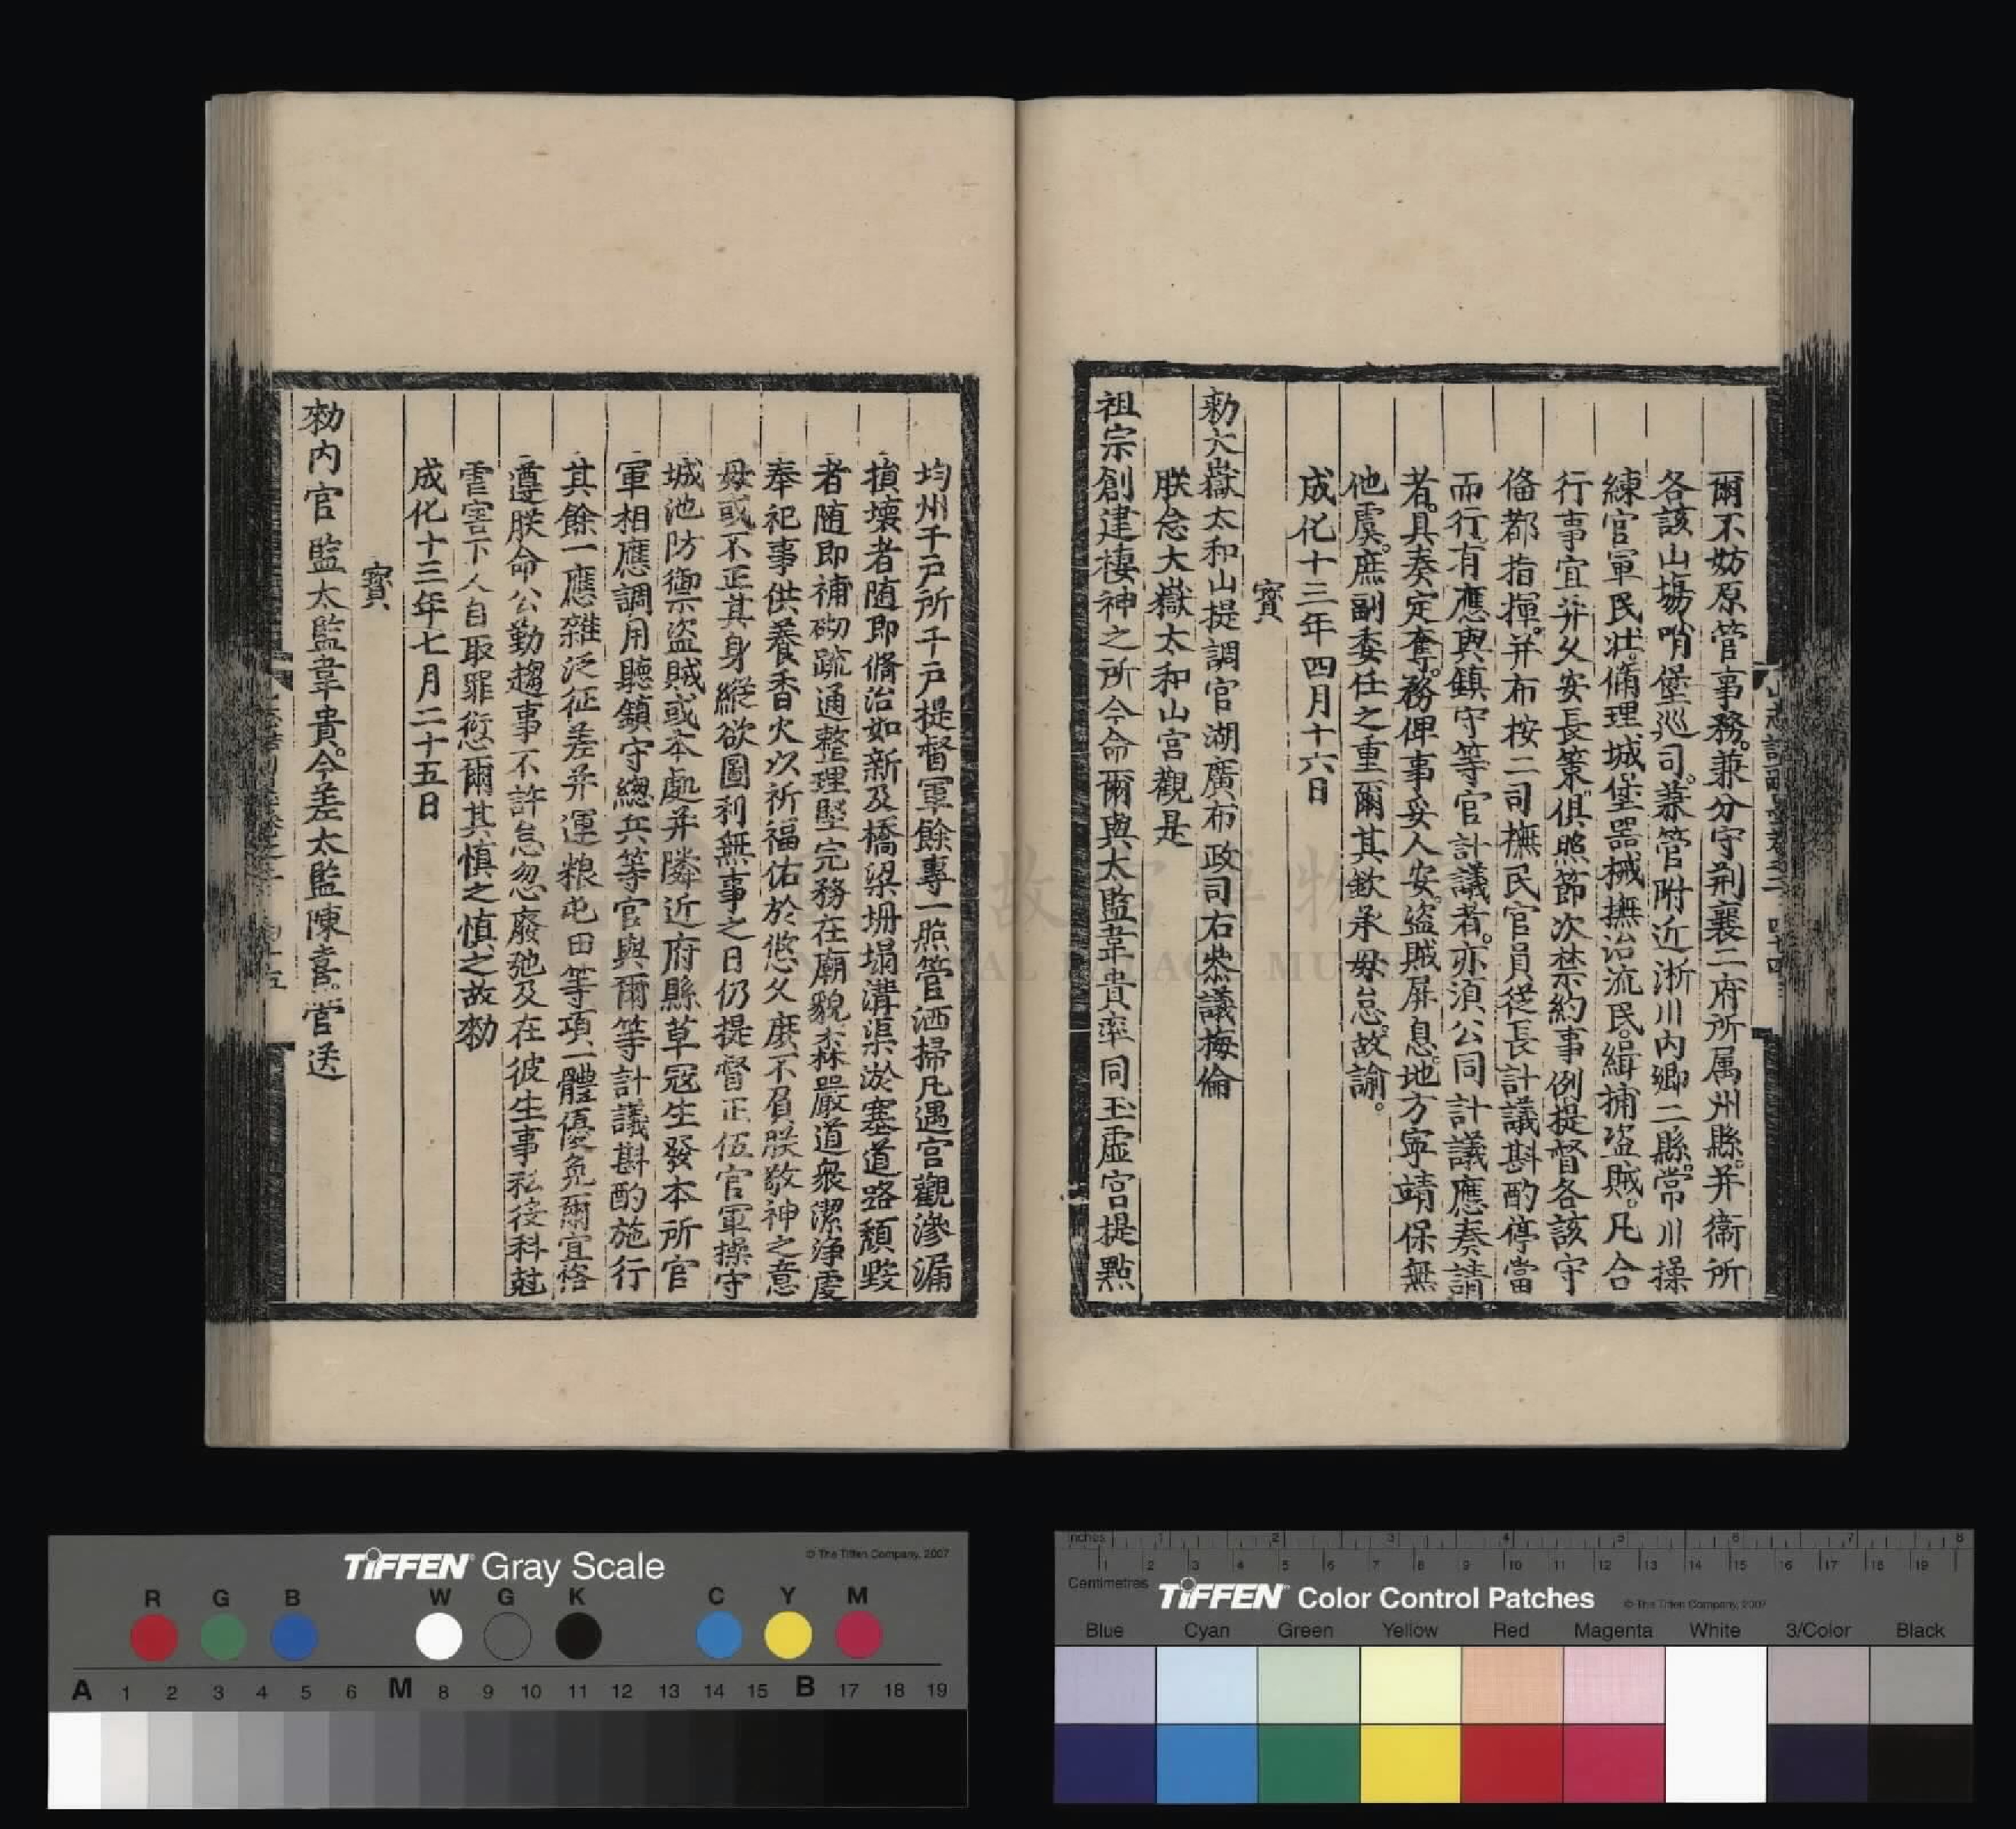 爾不妨原管事務。兼分守荆襄二府所属州縣。并衛所
各該山塲哨堡巡司。兼管附近淅川內鄉二縣。常川操
練官軍民壯。脩理城堡器械撫治流民。緝捕盜賊。凡合
行事宜并久安長策。俱照節次禁約事例提督各該守
備都指揮。并布按二司撫民官員從長計議斟酌停當
而行。有應與鎮守等官計議者。亦須公同計議應奏請
者。具奏定奪。務俾事妥人安。盜賊屏息。地方寧靖保無
他虞。庶副委任之重。爾其欽承毋怠。故諭。
成化十三年四月十六日
寳
勑大嶽太和山提調官湖廣布政司右叅議梅倫
朕念大嶽太和山宮觀是
祖宗創建棲神之所今命爾與太監韋貴率同玉虛宮提點
均州千戶所千戶提督軍餘專一照管洒掃凡遇宮觀滲漏
損壞者随即脩治如新及橋梁坍塌溝渠淤塞道路頹毀
者随即補砌疏通整理堅完務在廟貌森嚴道衆潔淨虔
奉祀事供養香火以祈福佑於悠久庶不負朕敬神之意
毋或不正其身縱欲圖利無事之日仍提督正伍官軍操守
城池防禦盜賊或本處并隣近府縣草寇生發本所官
軍相應調用聽鎮守總兵等官與爾等計議斟酌施行
其餘一應雜泛征差并運粮屯田等項一體優免爾宜恪
遵朕命公勤趨事不許怠忽廢弛及在彼生事私役科尅
害下人自取罪愆爾其慎之慎之故勑
成化十三年七月二十五日
寳
勑內官監太監韋貴。今差太監陳喜。管送
TIFFEN Gray Scale
© The Tiffen Company, 2007
R G B W G K C Y M
A 1 2 3 4 5 6 M 8 9 10 11 12 13 14 15 B 17 18 19
Inches 1 2 3 4 5 6 7 8
1 2 3 4 5 6 7 8 9 10 11 12 13 14 15 16 17 18 19
Centimetres
TIFFEN Color Control Patches
© The Tiffen Company, 2007
Blue Cyan Green Yellow Red Magenta White 3/Color Black